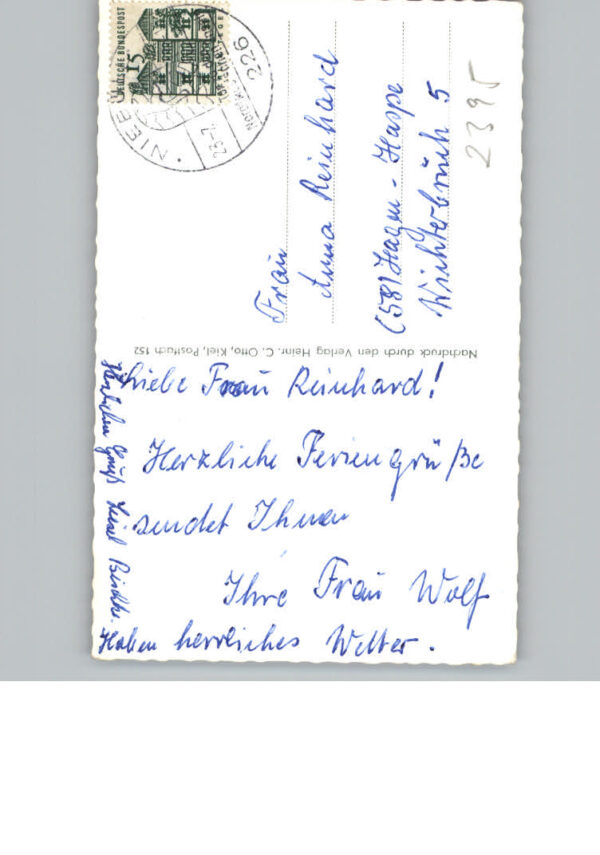 DEUTSCHE BUNDESPOST
15
NIEB
23.-7.
226
Frau
Anna Reinhard
(58) Hagen - Haspe
Wichterbruch 5
2395
Nachdruck durch den Verlag Heinr. C. Otto, Kiel, Postfach 152
Liebe Frau Reinhard!
Herzliche Feriengrüße
sendet Ihnen
Ihre Frau Wolf
Haben herrliches Wetter.
Herzlichen Gruß Liesel